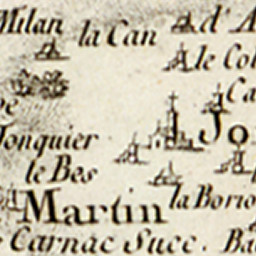 Milan
la Can
d'A
le Col
Ca
Jonquier
Jo
le Bes
Martin
la Borio
Carnac Succ.
Ba